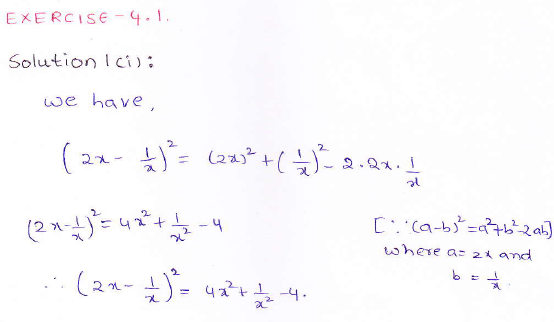 EXERCISE-4.1.
Solution 1(i):
we have,
(2x - 1/x)² = (2x)² + (1/x)² - 2·2x·1/x
(2x - 1/x)² = 4x² + 1/x² - 4
[∵ (a-b)² = a²+b²-2ab]
where a = 2x and
b = 1/x.
∴ (2x - 1/x)² = 4x² + 1/x² - 4.